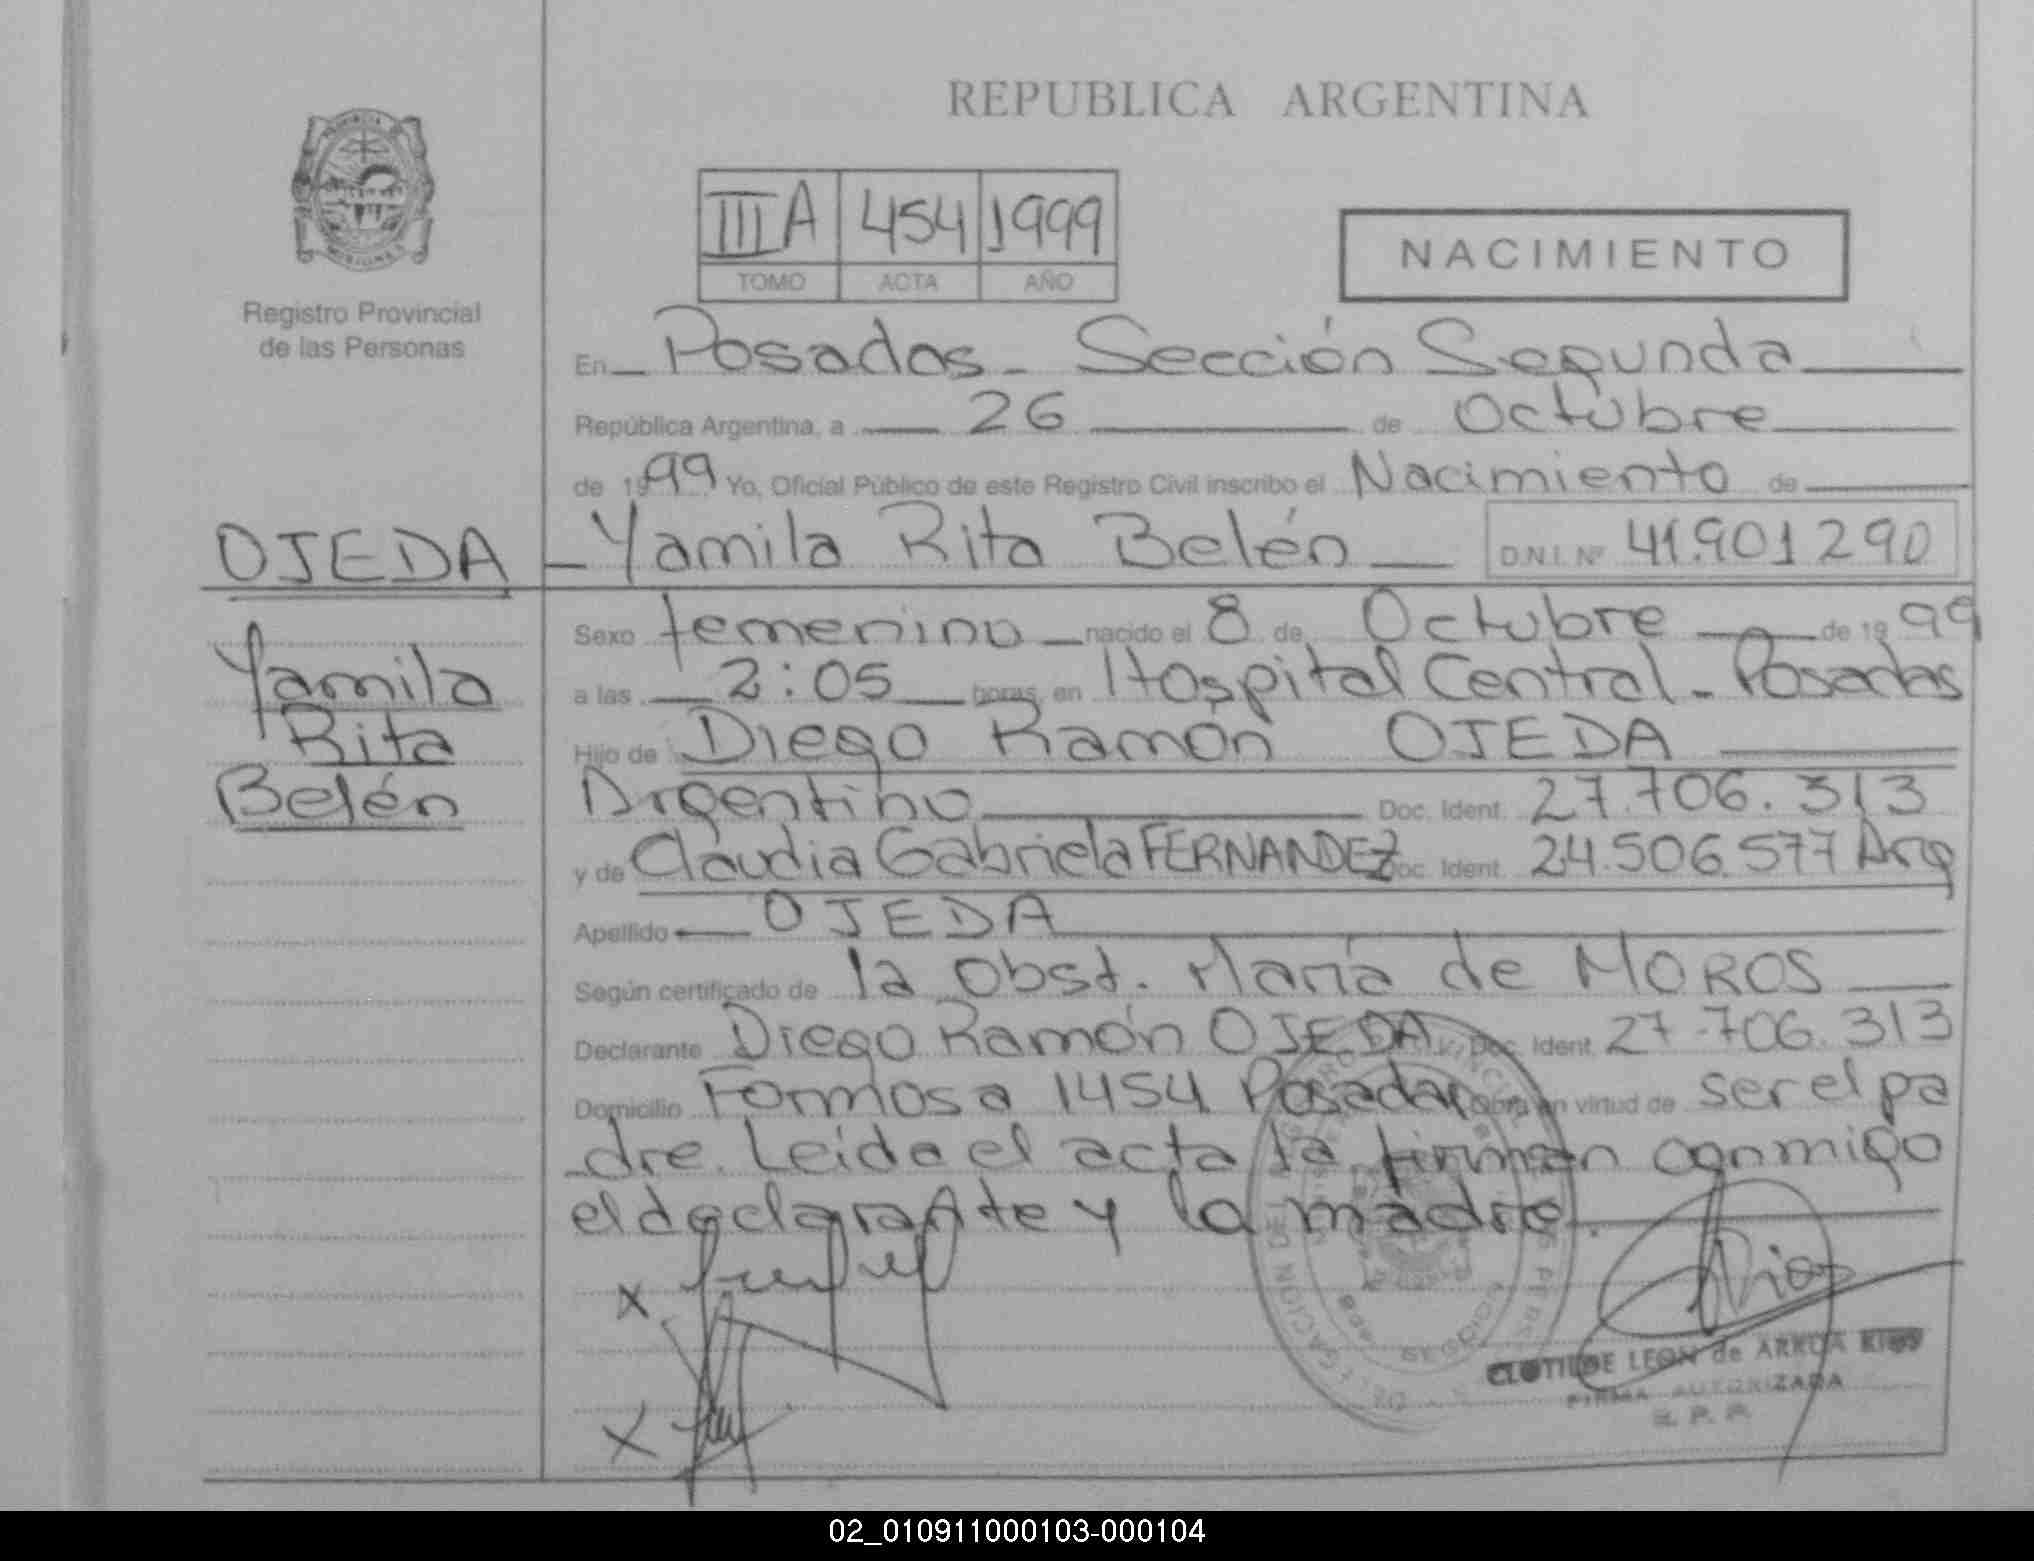 REPUBLICA ARGENTINA
PROVINCIA DE
MISIONES
Registro Provincial
de las Personas
III A 454 1999
TOMO ACTA AÑO
NACIMIENTO
En Posadas - Sección Segunda
República Argentina, a 26 de Octubre
de 1999 Yo, Oficial Público de este Registro Civil inscribo el Nacimiento de
OJEDA
Yamila Rita Belén D.N.I. Nº 41.901290
Yamila
Rita
Belén
Sexo femenino nacido el 8 de Octubre de 1999
a las 2:05 horas, en Hospital Central - Posadas
Hijo de Diego Ramón OJEDA
Argentino Doc. Ident. 27.706.313
y de Claudia Gabriela FERNANDEZ Doc. Ident. 24.506.577 Arg
Apellido OJEDA
Según certificado de la Obst. María de MOROS
Declarante Diego Ramón OJEDA Doc. Ident. 27.706.313
Domicilio Formosa 1454 Posadas Obra en virtud de ser el pa
dre. Leida el acta la firman conmigo
el declarante y la madre.
x
x
CLOTILDE LEON de ARRUA RIOS
FIRMA AUTORIZADA
R. P. P.
02_010911000103-000104